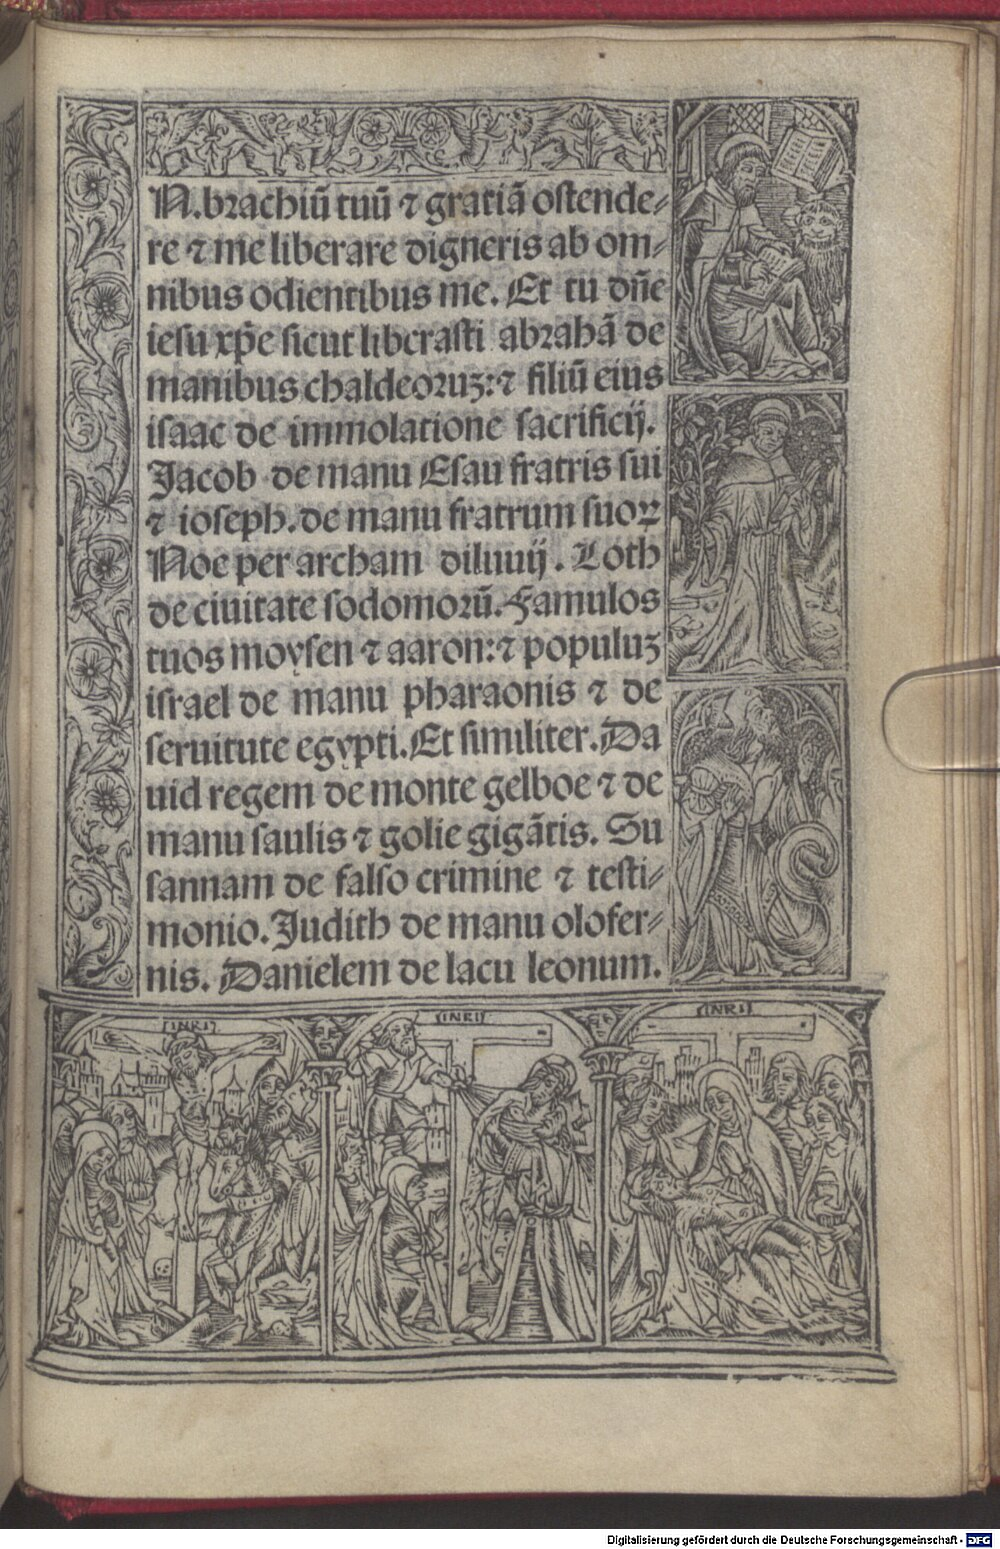 N.brachiū tuū ⁊ gratiā ostende⸗
re ⁊ me liberare digneris ab om⸗
nibus odientibus me. Et tu dn̄e
iesu xp̄e sicut liberasti abrahā de
manibus chaldeoruꝫ:⁊ filiū eius
isaac de immolatione sacrificij.
Jacob de manu Esau fratris sui
⁊ ioseph. de manu fratrum suoꝝ
Noe per archam diluuij. Loth
de ciuitate sodomorū. Famulos
tuos moysen ⁊ aaron:⁊ populuꝫ
israel de manu pharaonis ⁊ de
seruitute egypti. Et similiter. Da
uid regem de monte gelboe ⁊ de
manu saulis ⁊ golie gigātis. Su
sannam de falso crimine ⁊ testi⸗
monio. Judith de manu olofer⸗
nis. Danielem de lacu leonum.
INRI INRI INRI
Digitalisierung gefördert durch die Deutsche Forschungsgemeinschaft - DFG